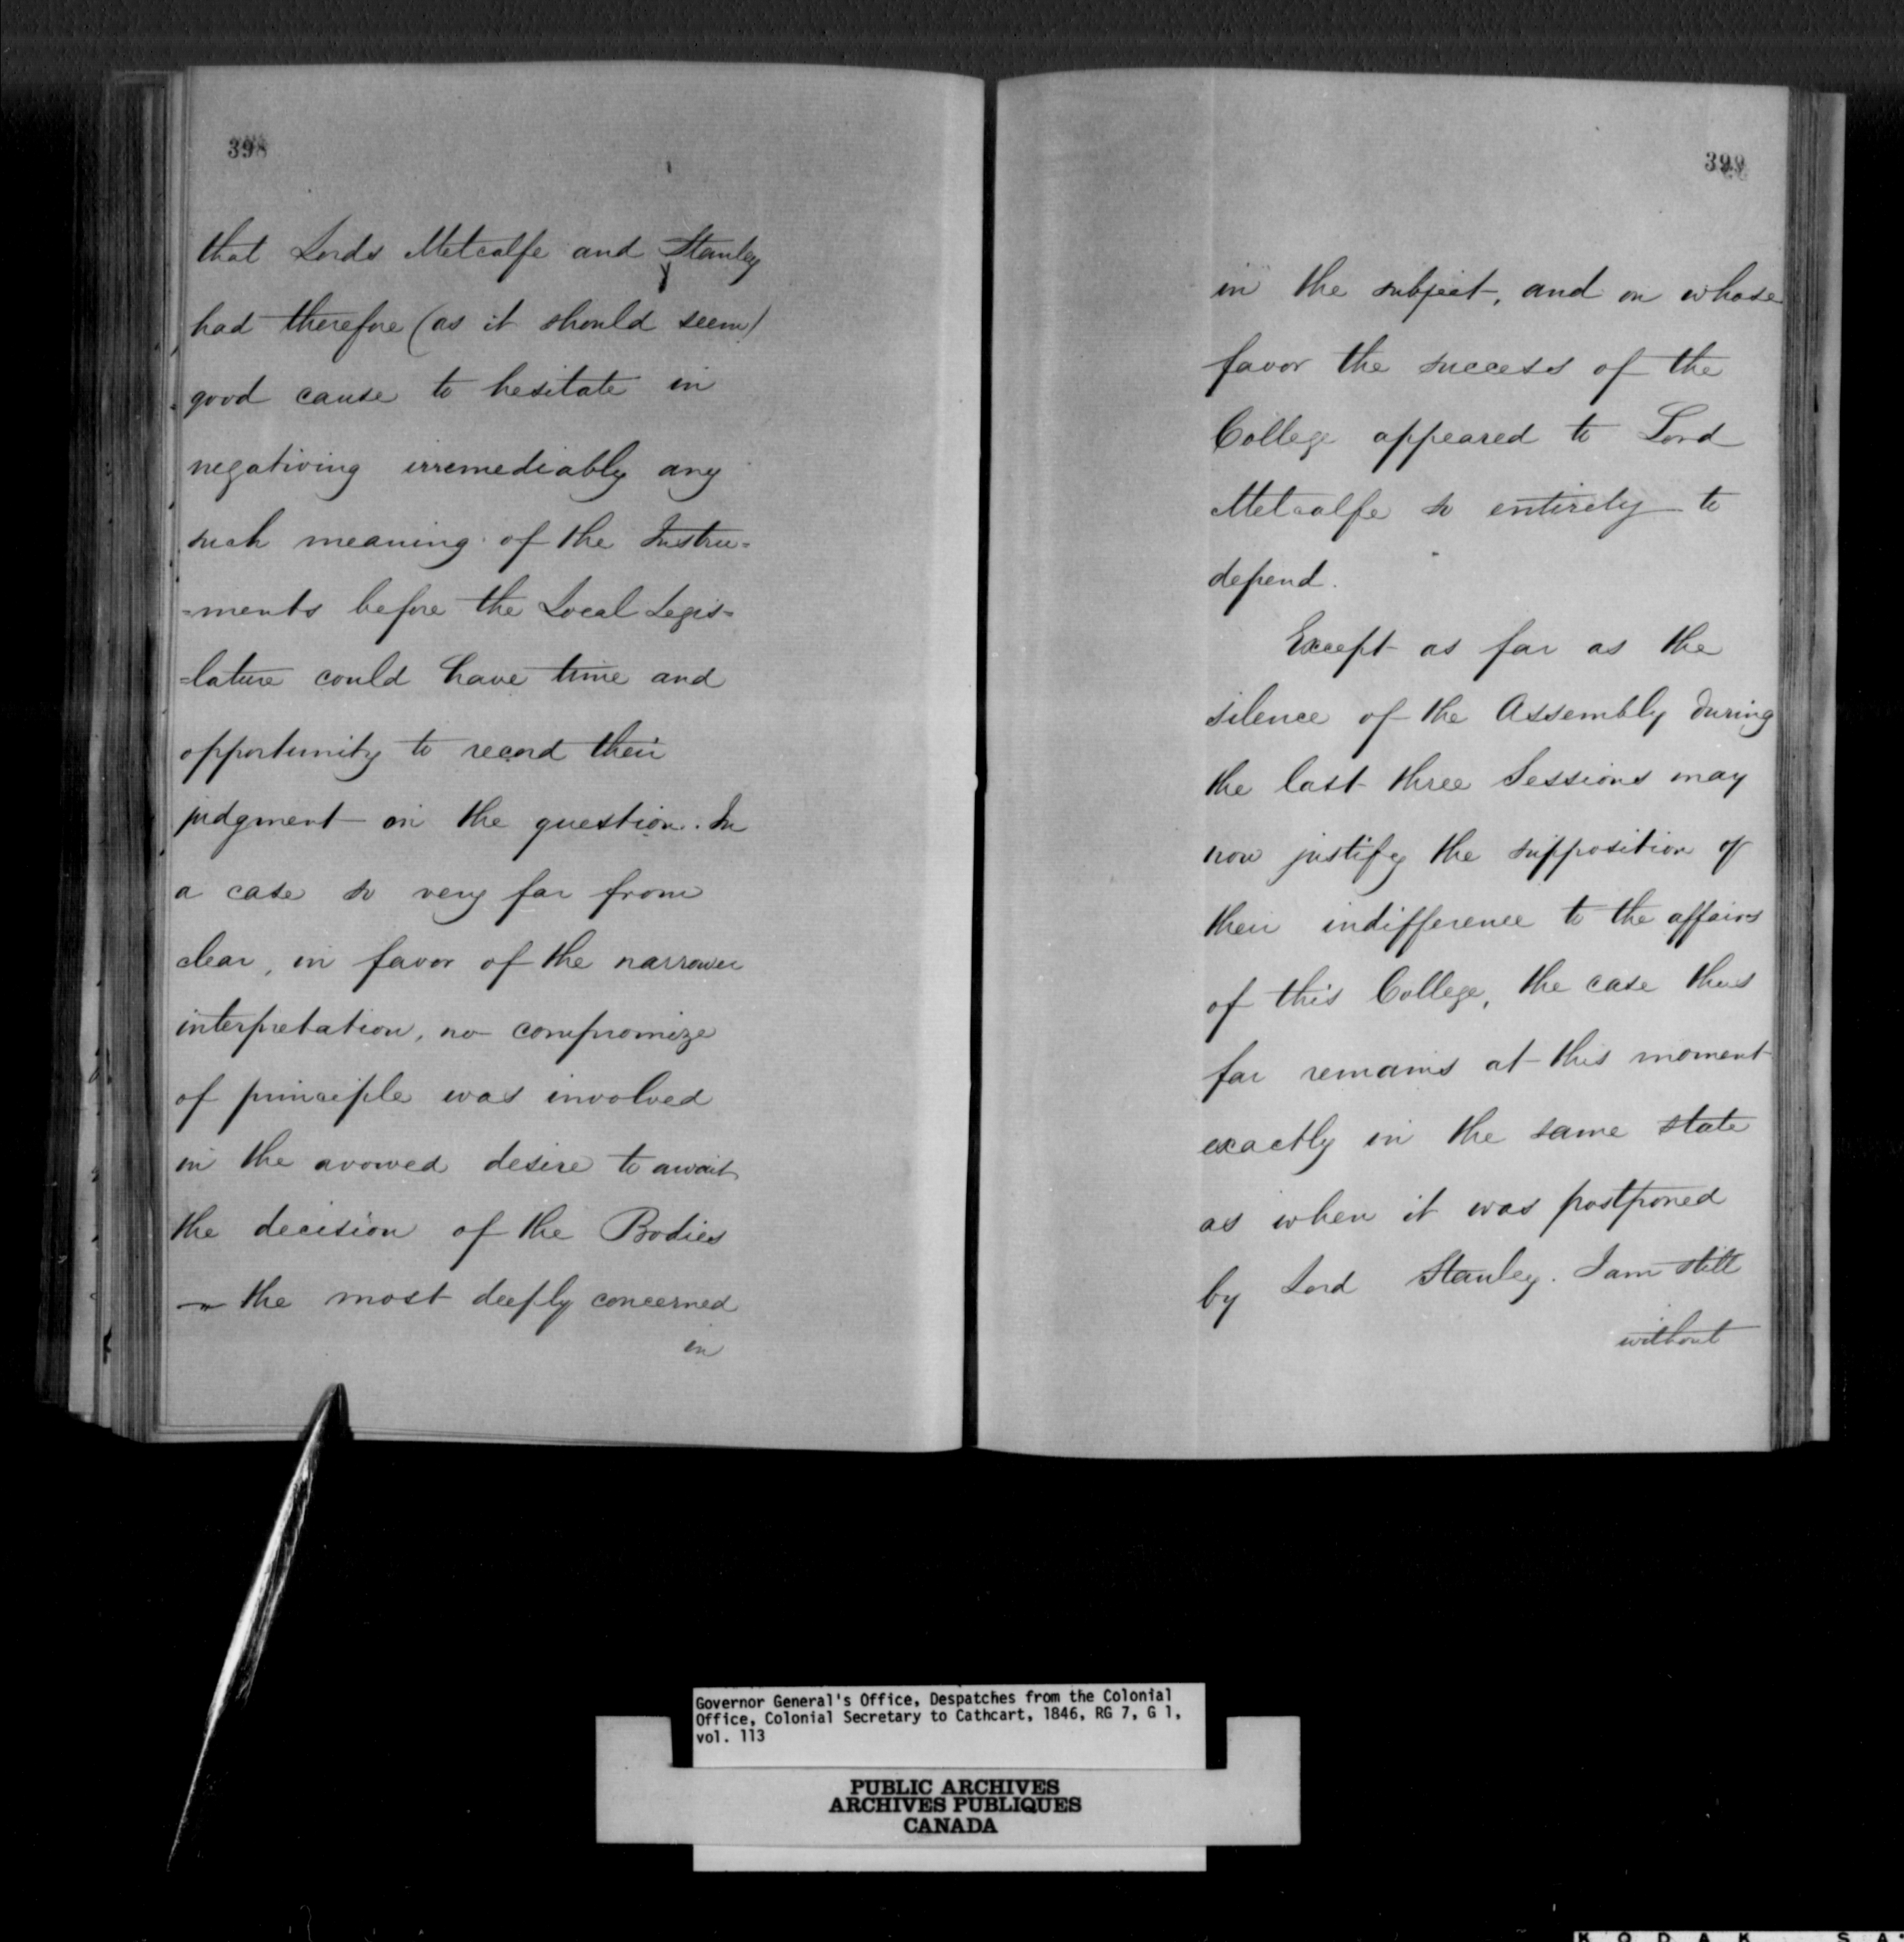 398
that Lords Metcalfe and Stanley
had therefore (as it should seem)
good cause to hesitate in
negativing irremediably any
such meaning of the Instru=
=ments before the Local Legis=
=lature could have time and
opportunity to record their
judgment on the question. In
a case so very far from
clear, in favor of the narrower
interpretation, no compromize
of principle was involved
in the avowed desire to await
the decision of the Bodies
the most deeply concerned
in
399
in the subject, and on whose
favor the success of the
College appeared to Lord
Metcalfe so entirely to
depend.
Except as far as the
silence of the Assembly during
the last three Sessions may
now justify the supposition of
their indifference to the affairs
of this College, the case thus
far remains at this moment
exactly in the same state
as when it was postponed
by Lord Stanley. I am still
without
Governor General's Office, Despatches from the Colonial
Office, Colonial Secretary to Cathcart, 1846, RG 7, G 1,
vol. 113
PUBLIC ARCHIVES
ARCHIVES PUBLIQUES
CANADA
KODAK SA